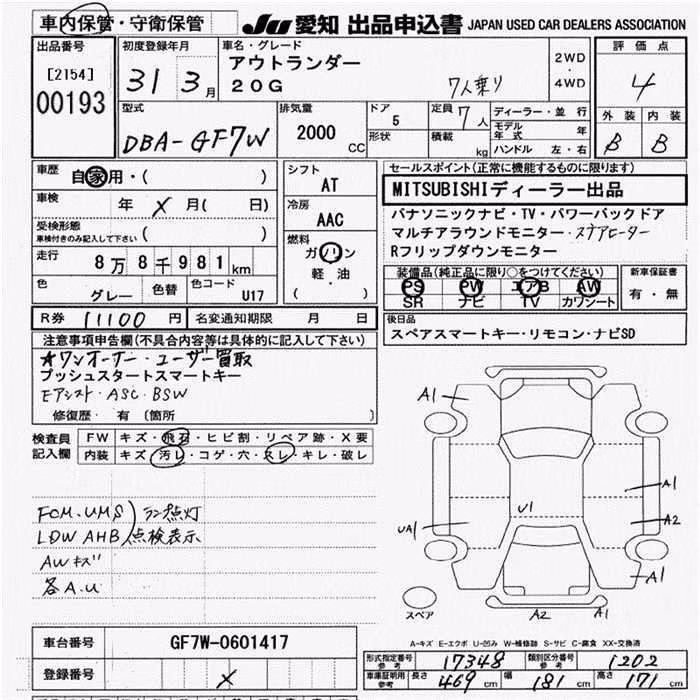 車内保管・守衛保管
JU 愛知 出品申込書 JAPAN USED CAR DEALERS ASSOCIATION
出品番号
[2154]
00193
初度登録年月
31 3月
車名・グレード
アウトランダー
20G
7人乗り
2WD
・
4WD
評価点
4
型式
DBA-GF7W
排気量
2000
CC
ドア
5
形状
定員
7人
積載
kg
ディーラー・並行
モデル
年式 年
ハンドル 左・右
外装 内装
B B
車歴
自家用・( )
車検
年 X 月( 日)
受検形態
車検付きのみ記入して下さい ( )
走行
8万8千981km
色
グレー
色替
色コード
U17
シフト
AT
冷房
AAC
燃料
ガソリン
軽・油
( )
セールスポイント(正常に機能するものに限ります)
MITSUBISHIディーラー出品
パナソニックナビ・TV・パワーバックドア
マルチアラウンドモニター・ステアヒーター
Rフリップダウンモニター
装備品(純正品に限り○をつけてください)
PS PW エアB AW
SR ナビ TV カワシート
新車保証書
有・無
R券 11100 円
名変通知期限 月 日
後日品
スペアスマートキー・リモコン・ナビSD
注意事項申告欄(不具合内容等は具体的に記入して下さい)
★ワンオーナー・ユーザー買取
プッシュスタートスマートキー
Eアシスト・ASC・BSW
修復歴・有(箇所 )
検査員
記入欄
FW キズ・飛石・ヒビ割・リペア跡・X要
内装 キズ・汚レ・コゲ・穴・スレ・キレ・破レ
FCM・UMS
LDW AHB
ランプ点灯
点検表示
AWキズ
各A.U
A1
A1
A2
A1
U1
UA1
A2
A1
スペア
A-キズ E-エクボ U-凹み W-補修跡 S-サビ C-腐食 XX-交換済
車台番号
GF7W-0601417
登録番号
X
形式指定番号
参考
17348
類別区分番号
参考
1202
車庫証明用
参考
長さ 469cm
幅 181cm
高さ 171cm